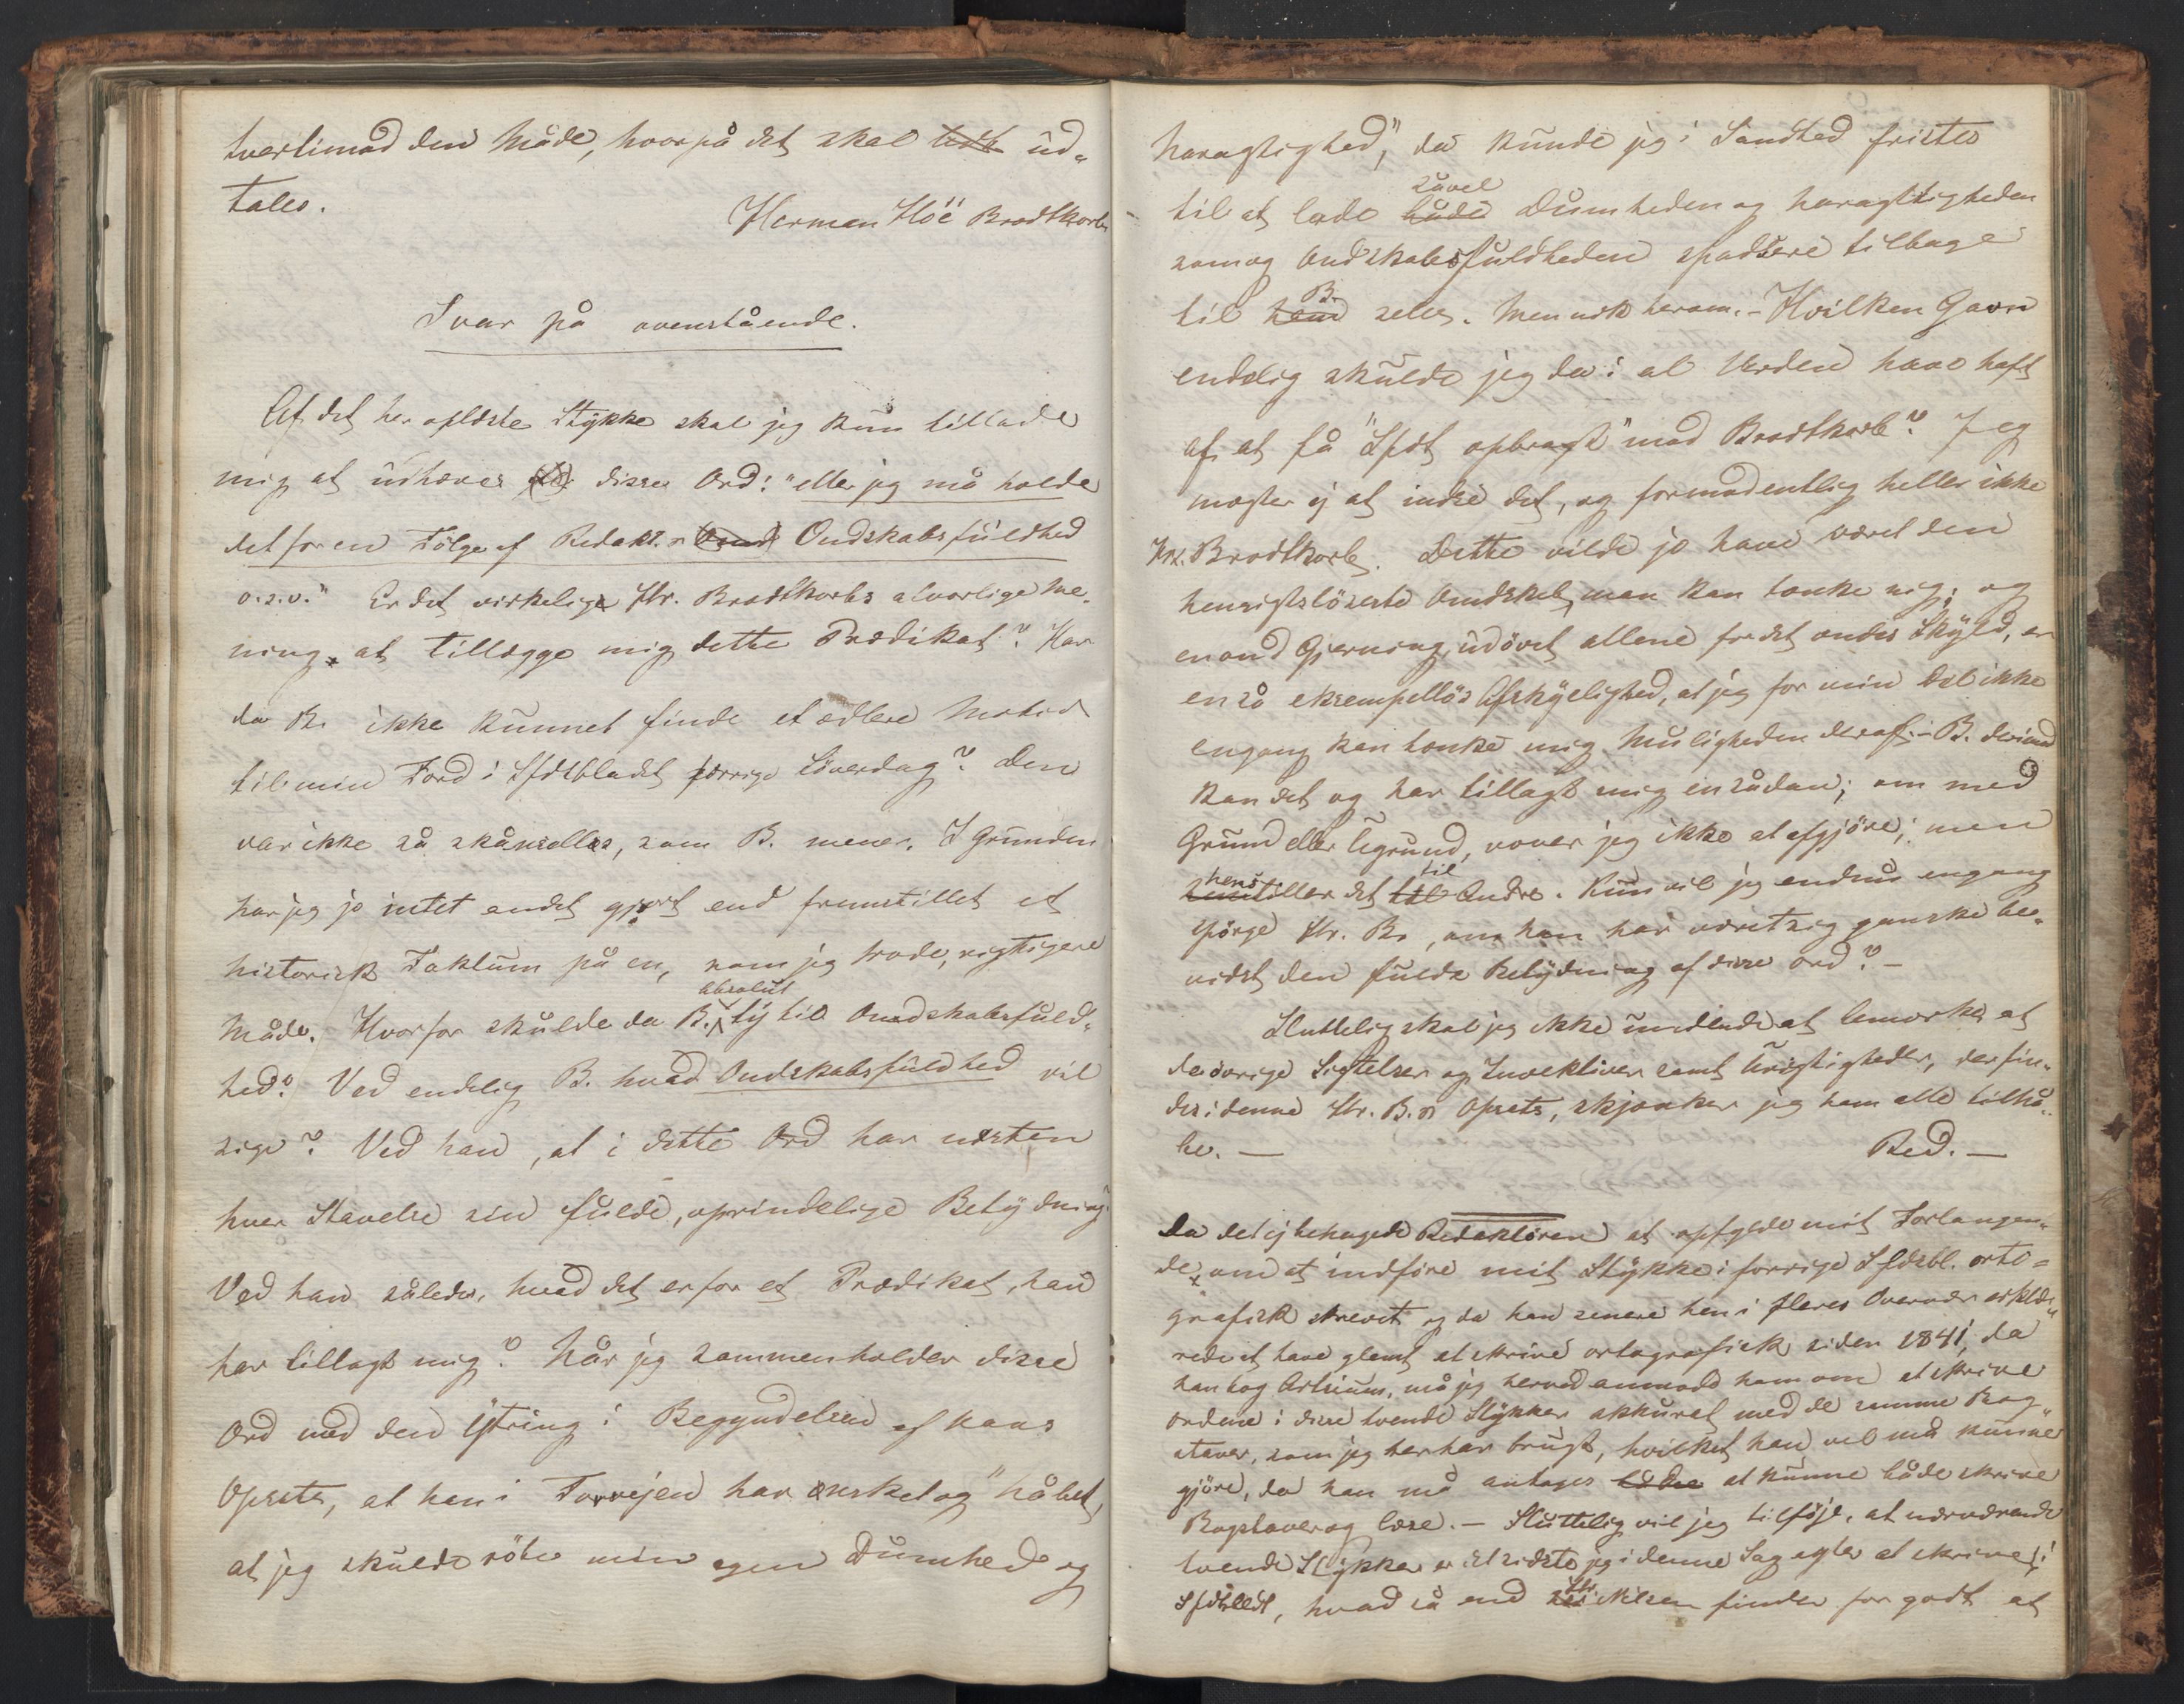 tvertimod den Måde, hvorpå det skal ud-
tales.
Herman Höe Brodtkorb
Svar på ovenstående.
Af det her oplæste Stykke skal jeg kun tillade
mig at udhæve disse Ord: "eller jeg må holde
det for en Følge af Redakt.s Ondskabsfuldhed
o.s.v." Er det virkelig Hr. Brodtkorbs alvorlige Me-
ning, at tillægge mig dette Prædikat? Har
da B. ikke kunnet finde et ædlere Motiv
til min Færd i Sfdsbladet forrige Löverdag? Den
var ikke så skånsellös, som B. mener. I Grunden
har jeg jo intet andet gjort end fremstillet et
historisk Faktum på en, som jeg trode, rigtigere
Måde. Hvorfor skulde da B. absolut ty til Ondskabsfuld-
hed? Ved endelig B. hvad Ondskabsfuldhed vil
sige? Ved han, at i dette Ord har næsten
hver Stavelse sin fulde, oprindelige Betydning?
Ved han således, hvad det er for et Prædikat, han
har tillagt mig? Når jeg sammenholder disse
Ord med den Ytring i Begyndelsen af hans
Opsats, at han i Forvejen har ønsket og "håbet,
at jeg skulde röbe min egen Dumhed og
haragtighed," da kunde jeg i Sandhed fristes
til at lade såvel Dumheden og haragtigheden
som og Ondskabsfuldheden spadsere tilbage
til B. selv. Men nok herom. - Hvilken Gavn
endelig skulde jeg da i al Verden have haft
af at få "Sfdt opbragt" mod Brodtkorb? Jeg
mægter ej at indse det, og formodentlig heller ikke
Hr. Brodtkorb. Dette vilde jo have været den
hensigtslöseste Ondskab, man kan tænke sig; og
en ond Gjerning, udövet allene for det ondes Skyld, er
en så eksempellös Afskyelighed, at jeg for min Del ikke
engang kan tænke mig Muligheden deraf. - B. derimod
kan det og har tillagt mig en sådan; om med
Grund eller Ugrund, vover jeg ikke at afgjöre; men
henstiller det til Andre. Kun vil jeg endnu engang
spörge Hr. B., om han har været sig ganske be-
vidst den fulde Betydning af disse Ord? -
Sluttelig skal jeg ikke undlade at bemærke, at
de övrige Sigtelser og Invektiver samt Urigtigheder, der fin-
des i denne Hr. B.s Opsats, skjænker jeg ham alle tilba-
ge. -
Red. -
Da det ej behagede Redaktören at opfylde mit Forlangen-
de om at indföre mit Stykke i forrige Sfdsbl. orto=
grafisk skrevet og da han senere hen i fleres Overvær erklæ-
rede at have glemt at skrive ortografisk siden 1841, da
han tog Artium, må jeg herved anmode ham om at skrive
Ordene i disse tvende Stykker akkurat med de samme Bog-
staver, som jeg her har brugt, hvilket han vel må kunne
gjöre, da han må antages at kunne både skrive
Bogstaver og læse. - Sluttelig vil jeg tilföje, at nærværende
tvende Stykker er det sidste jeg i denne Sag agter at skrive i
Sfdsbldt, hvad så end Hr. Nilsen finder for godt at